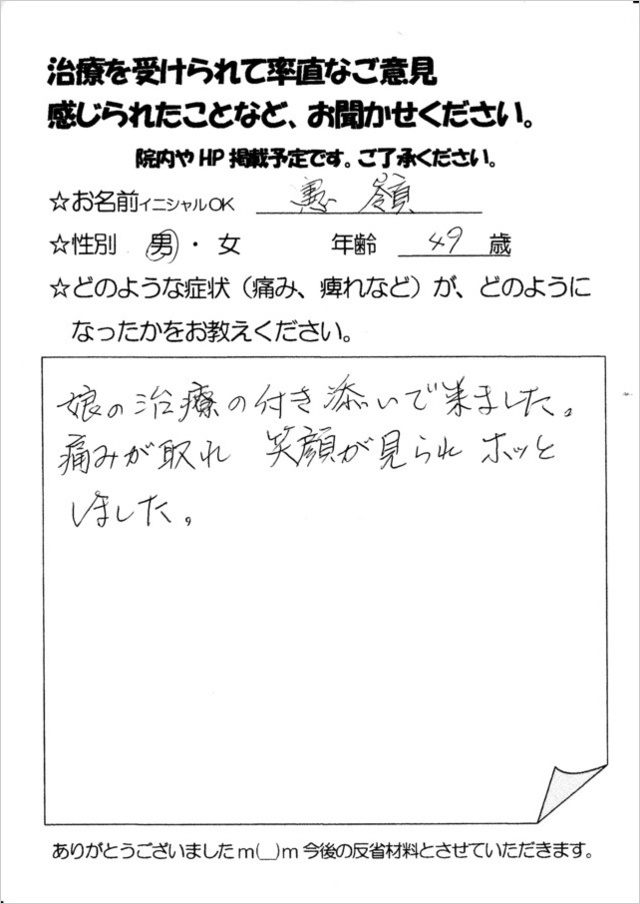 治療を受けられて率直なご意見
感じられたことなど、お聞かせください。
院内やHP掲載予定です。ご了承ください。
☆お名前イニシャルOK
☆性別 男・女 年齢 49 歳
☆どのような症状（痛み、痺れなど）が、どのように
なったかをお教えください。
娘の治療の付き添いで来ました。
痛みが取れ 笑顔が見られ ホッと
しました。
ありがとうございましたm(__)m今後の反省材料とさせていただきます。